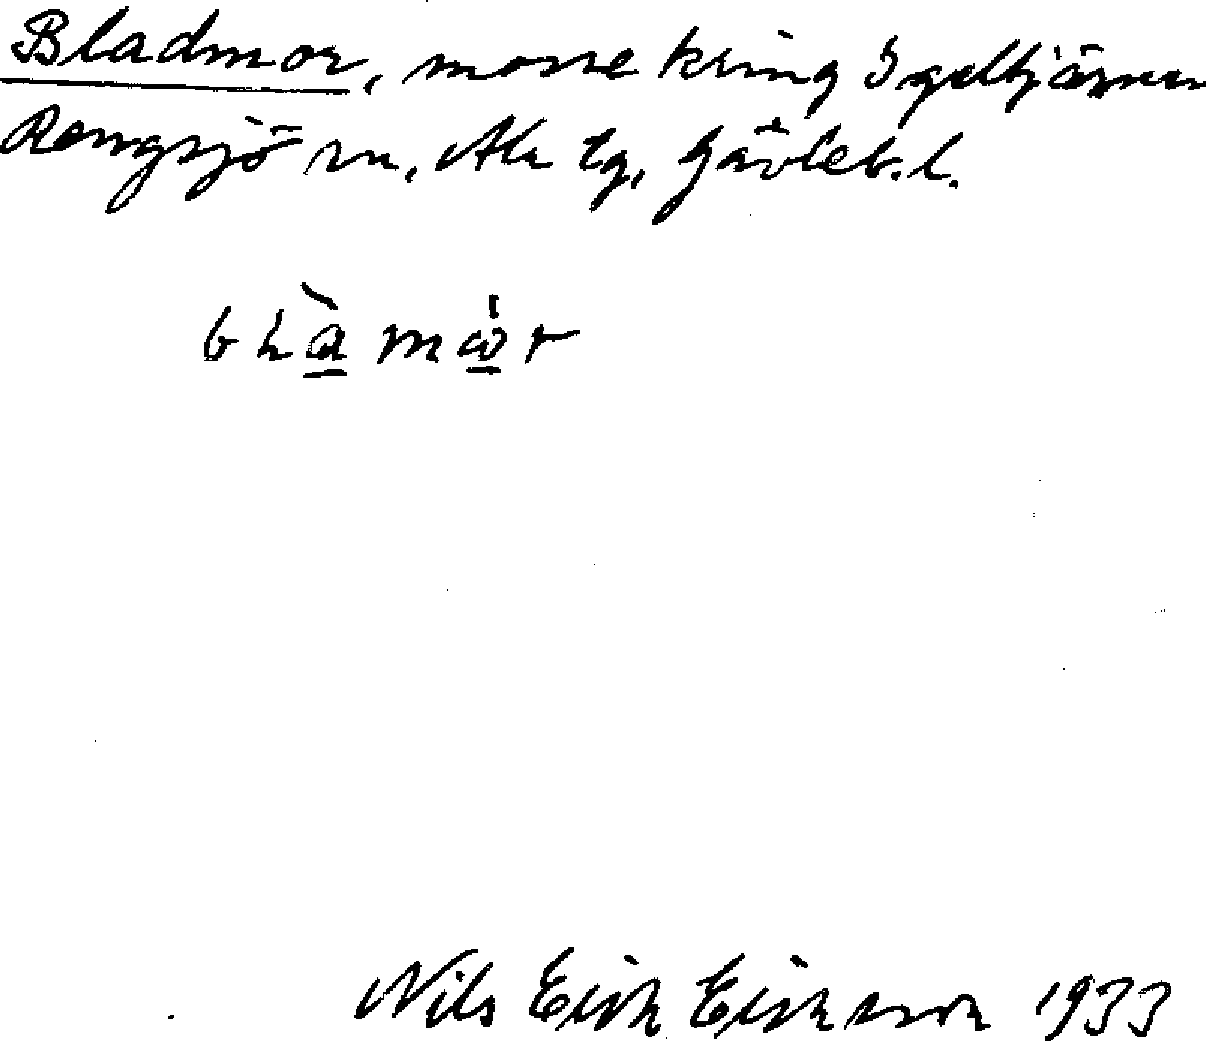 Bladmor, mosse kring Igeltjärnen
Rengsjö sn, Ala tg, Gävleb. l.
Nils Erik Eriksson 1933